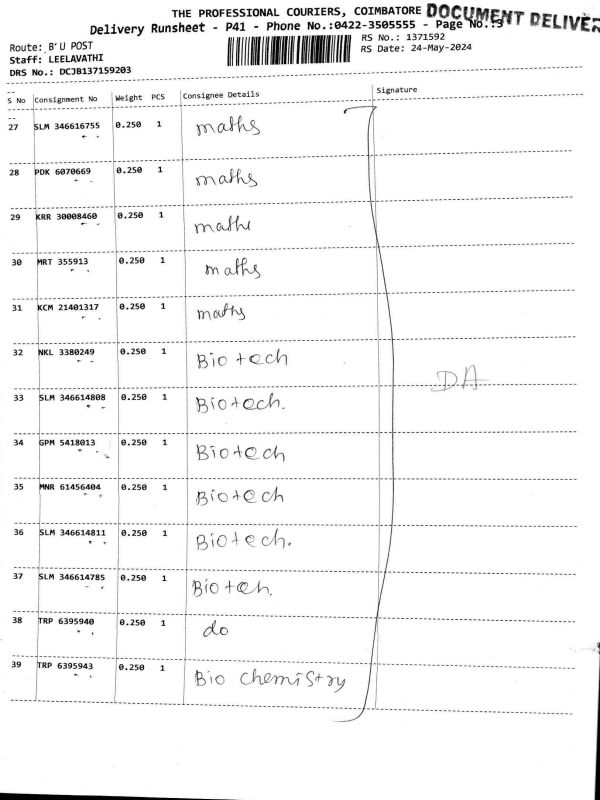 THE PROFESSIONAL COURIERS, COIMBATORE DOCUMENT DELIVER
Delivery Runsheet - P41 - Phone No.:0422-3505555 - Page No.:3
Route: B'U POST
RS No.: 1371592
Staff: LEELAVATHI
RS Date: 24-May-2024
DRS No.: DCJB137159203
S No Consignment No Weight PCS Consignee Details Signature
27 SLM 346616755 0.250 1 maths
28 PDK 6070669 0.250 1 maths
29 KRR 30008460 0.250 1 maths
30 MRT 355913 0.250 1 maths
31 KCM 21401317 0.250 1 maths
32 NKL 3380249 0.250 1 Biotech
DA
33 SLM 346614808 0.250 1 Biotech.
34 GPM 5418013 0.250 1 Biotech
35 MNR 61456404 0.250 1 Biotech
36 SLM 346614811 0.250 1 Biotech.
37 SLM 346614785 0.250 1 Biotech.
38 TRP 6395940 0.250 1 do
39 TRP 6395943 0.250 1 Bio chemistry